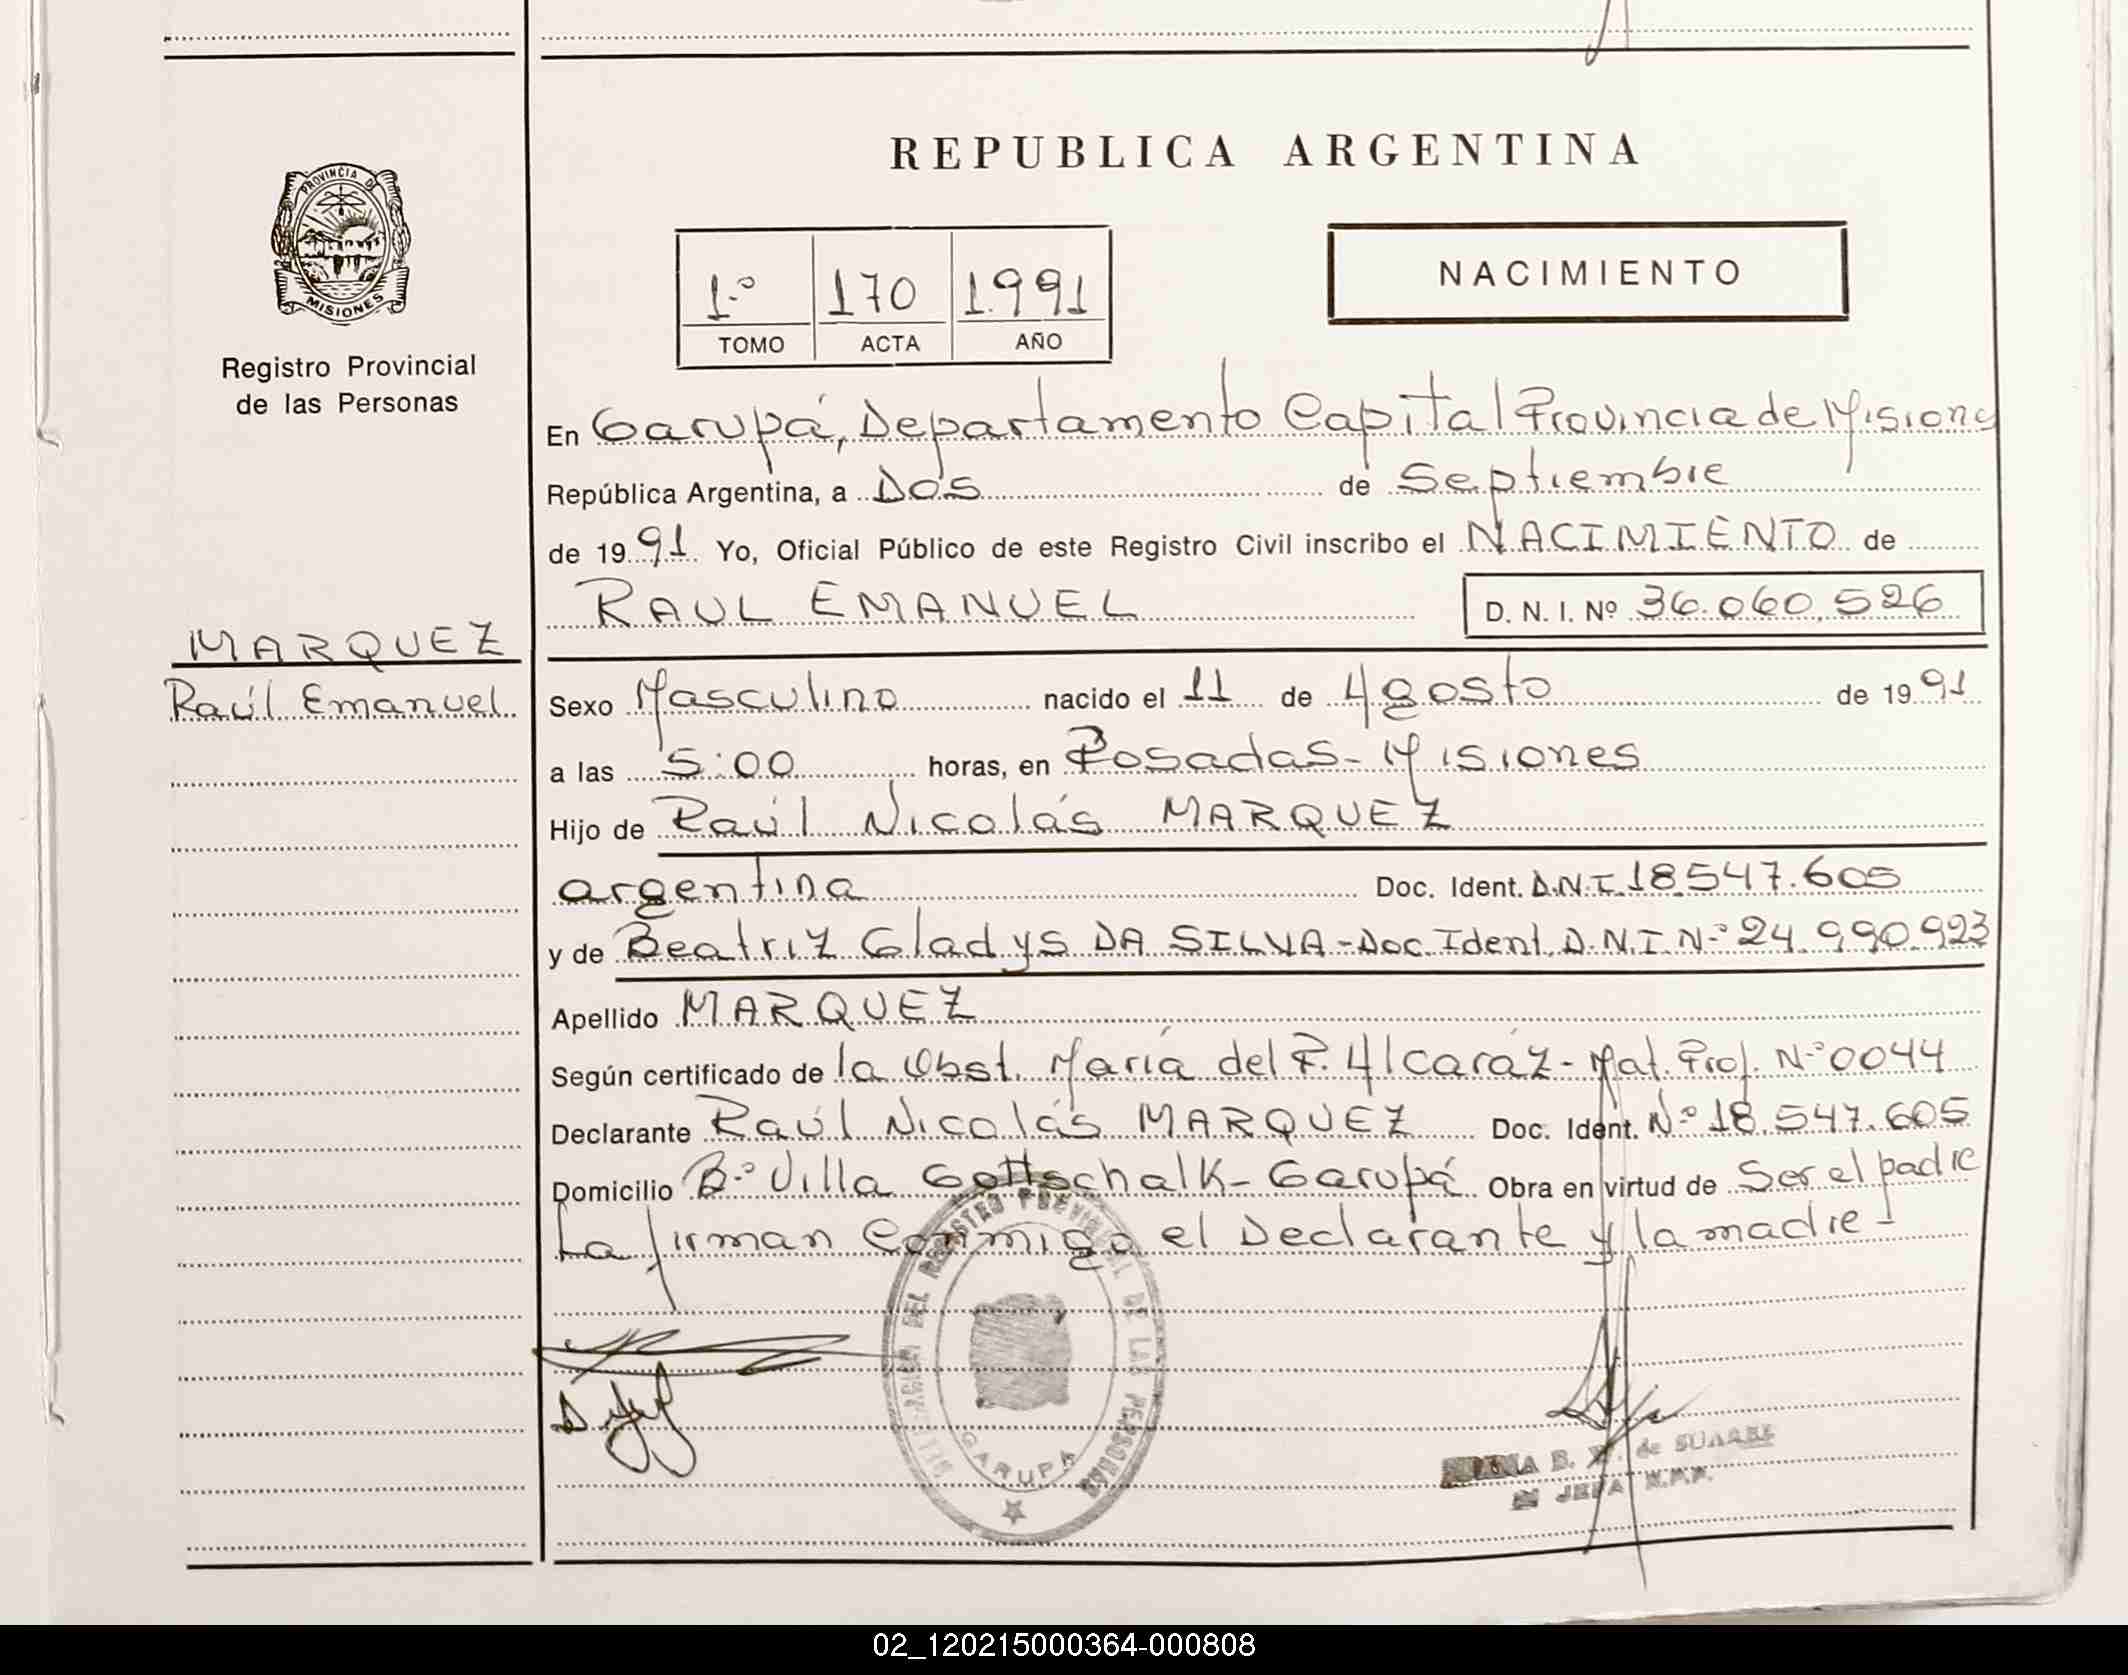 REPUBLICA ARGENTINA
PROVINCIA DE
MISIONES
Registro Provincial
de las Personas
NACIMIENTO
1.º 170 1.991
TOMO ACTA AÑO
En Garupá, Departamento Capital Provincia de Misiones
República Argentina, a Dos de Septiembre
de 1991 Yo, Oficial Público de este Registro Civil inscribo el NACIMIENTO de
RAUL EMANUEL D. N. I. Nº 36.060.526
MARQUEZ
Raúl Emanuel
Sexo Masculino nacido el 11 de Agosto de 1991
a las 5:00 horas, en Posadas - Misiones
Hijo de Raúl Nicolás MARQUEZ
argentina Doc. Ident. D.N.I. 18.547.605
y de Beatriz Gladys DA SILVA - Doc. Ident. D.N.I N.º 24.990.923
Apellido MARQUEZ
Según certificado de la Obst. María del P. Alcaráz - Mat. Prof. N.º 0044
Declarante Raúl Nicolás MARQUEZ Doc. Ident. N.º 18.547.605
Domicilio B.º Villa Gottschalk - Garupá Obra en virtud de Ser el padre
La firman Conmigo el Declarante y la madre -
DEL REGISTRO PROVINCIAL DE LAS PERSONAS
GARUPA
B. de SUAREZ
JEFA
02_120215000364-000808